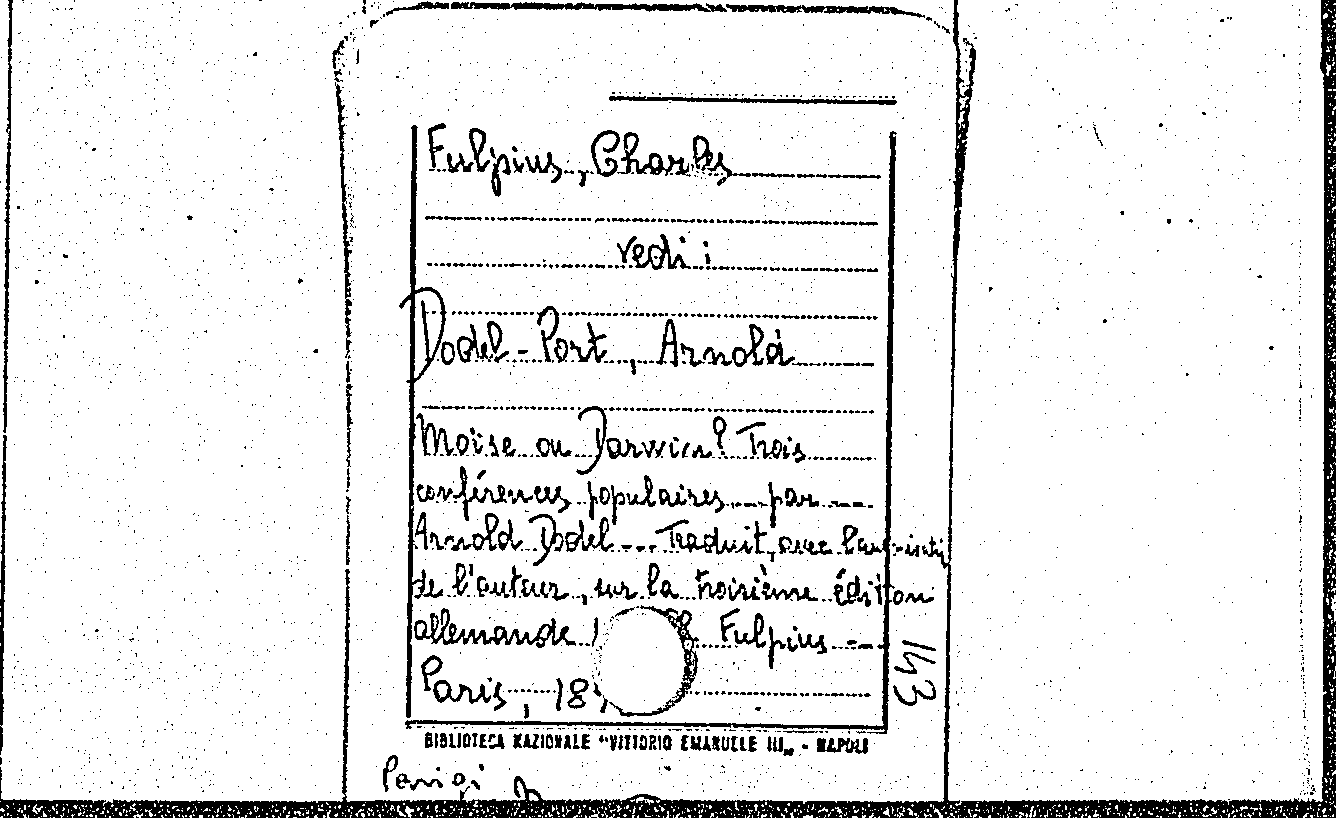 Fulpius, Charles
vedi:
Dodel-Port, Arnold
Moïse ou Darwin? Trois
conférences populaires --- par ---
Arnold Dodel --- Traduit, avec
de l'auteur, sur la troisième édition
allemande Fulpius ---
Paris, 18
143
BIBLIOTECA NAZIONALE "VITTORIO EMANUELE III„ - NAPOLI
Parigi